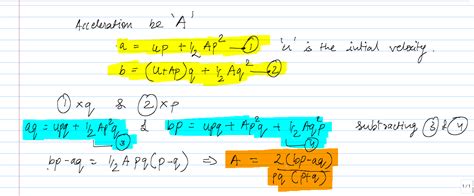 Acceleration be 'A'
a = up + 1/2 Ap² — ① 'u' is the intial velocity.
b = (u+Ap)q + 1/2 Aq² — ②
① ×q & ② ×p
aq = upq + 1/2 Ap²q ③ & bp = upq + Ap²q + 1/2 Aq²p ④ subtracting ③ & ④
bp-aq = 1/2 A pq(p-q) ⇒ A = 2(bp-aq)/pq(p+q)